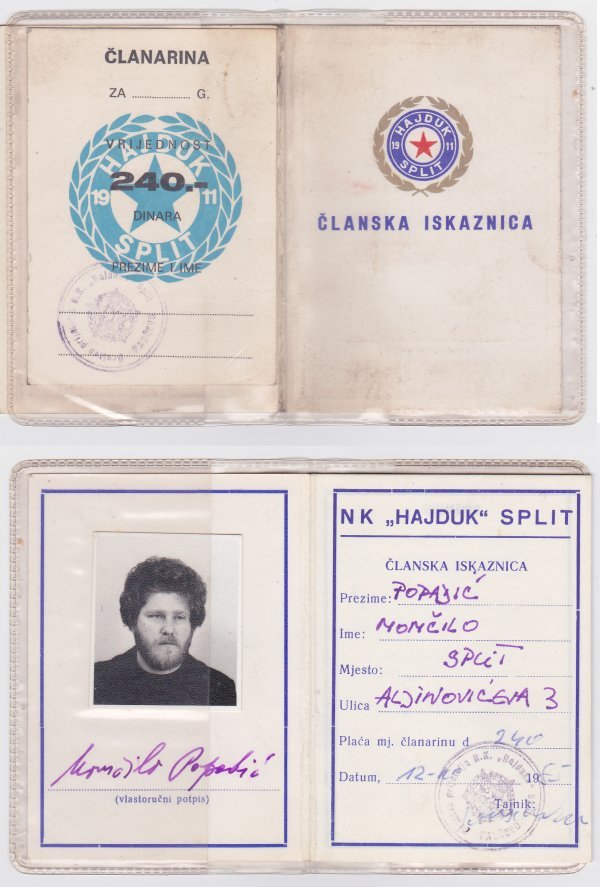 ČLANARINA
ZA ............ G.
VRIJEDNOST
HAJDUK
240.-
19 11
DINARA
SPLIT
PREZIME I IME
HAJDUK
19 11
SPLIT
ČLANSKA ISKAZNICA
NK „HAJDUK“ SPLIT
ČLANSKA ISKAZNICA
Prezime: POPADIĆ
Ime: MOMČILO
Mjesto: SPLIT
Ulica ALJINOVIĆEVA 3
Plaća mj. članarinu d 240
Datum, 12- 19
Tajnik:
Momčilo Popadić
(vlastoručni potpis)